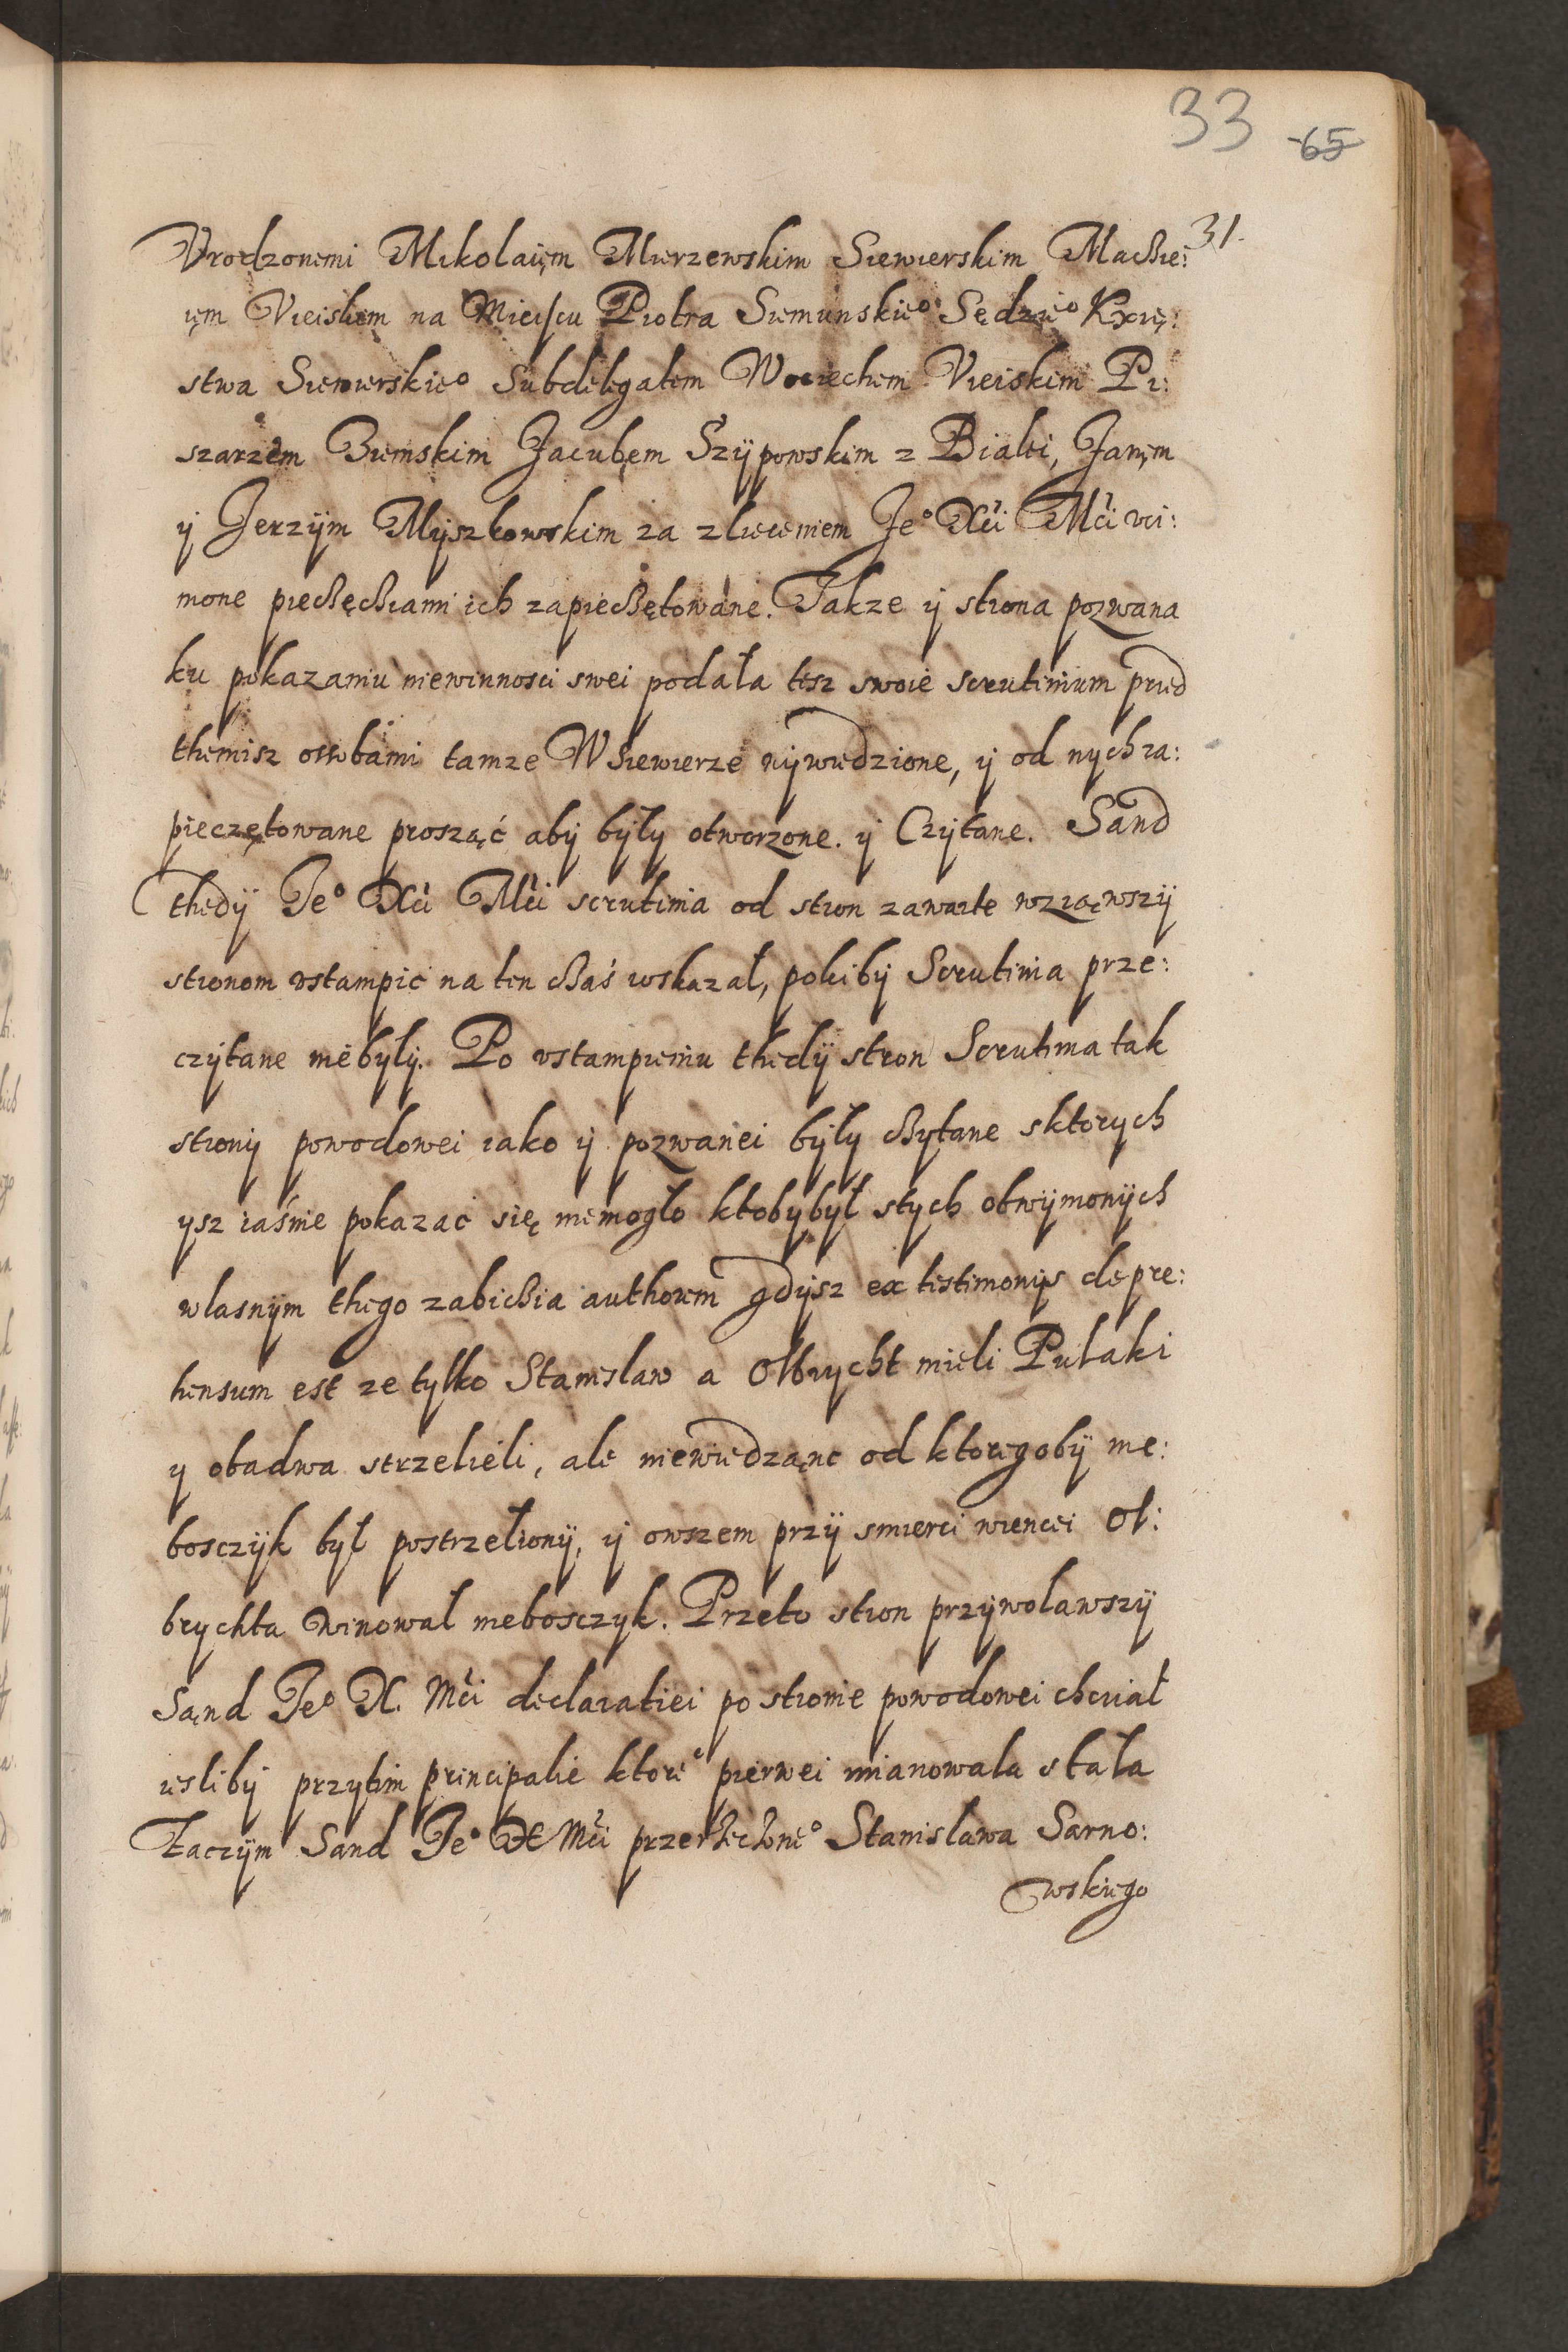 33 65
31.
Vrodzonemi Mikolaięm Mierzewskim Siewierskim Machie:
ięm Vieiskem na Mieiscu Piotra Siemunskieº Sędzieº Kxię:
stwa Siewierskieº Subdelegatem Wociechem Vieiskim Pi:
szarzem Ziemskim Jacubęm Szÿpowskim z Bialei, Janęm
ÿ Jerzÿm Mÿszkowskim za zleceniem Jeº Xći Mći vci:
nione piechęchiami ich zapiechętowane. Takze ÿ strona pozwana
ku pokazaniu niewinnosci swei podała tesz swoie scrutinium przed
themisz ossobami tamze W Siewierze wÿwiedzione, ÿ od nych za:
pieczętowane prosząć abÿ bÿłÿ otworzone. ÿ Czÿtane. Sand
thedÿ Jeº Xći Mći scrutinia od stron zawarte wziąwszÿ
stronom vstampić na ten chaś wskazał, pokibÿ Scrutinia prze:
czÿtane niebÿlÿ. Po vstampieniu thedÿ stron Scrutinia tak
stronÿ powodowei iako ÿ pozwanei bÿłÿ chytane sktorych
ysz iaśnie pokazać się niemogło ktobÿbÿł stych obwÿnionÿch
wlasnÿm thego zabichia authorem gdÿsz ex testimonÿs depre:
hensum est ze tylko Stanislaw a Olbrycht mieli Pulaki
y obadwa strzelieli, ale niewiedzanc od ktoregobÿ nie:
bosczÿk był postrzelionÿ, ÿ owszem przÿ smierci wiencei Ol:
brychta winował niebosczyk. Przeto stron przÿwolawszÿ
Sąnd Jeº X. Mći declaratiei po stronie powodowei chciał
iesliby przytim principalie ktoreº pierwei mianowala stała
Zaczÿm Sand Jeº X Mći przerzeczoneº Stanislawa Sarno:
wskiego